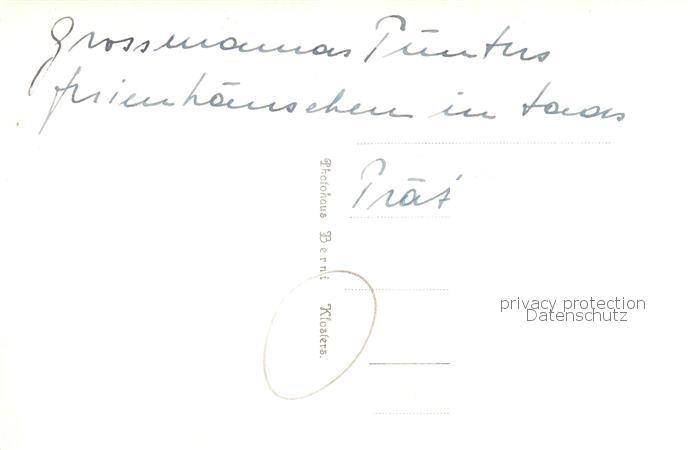 Grossmamas Pünters
ferienhäuschen in Saas
Prät'
Photohaus Berni Klosters.
privacy protection
Datenschutz